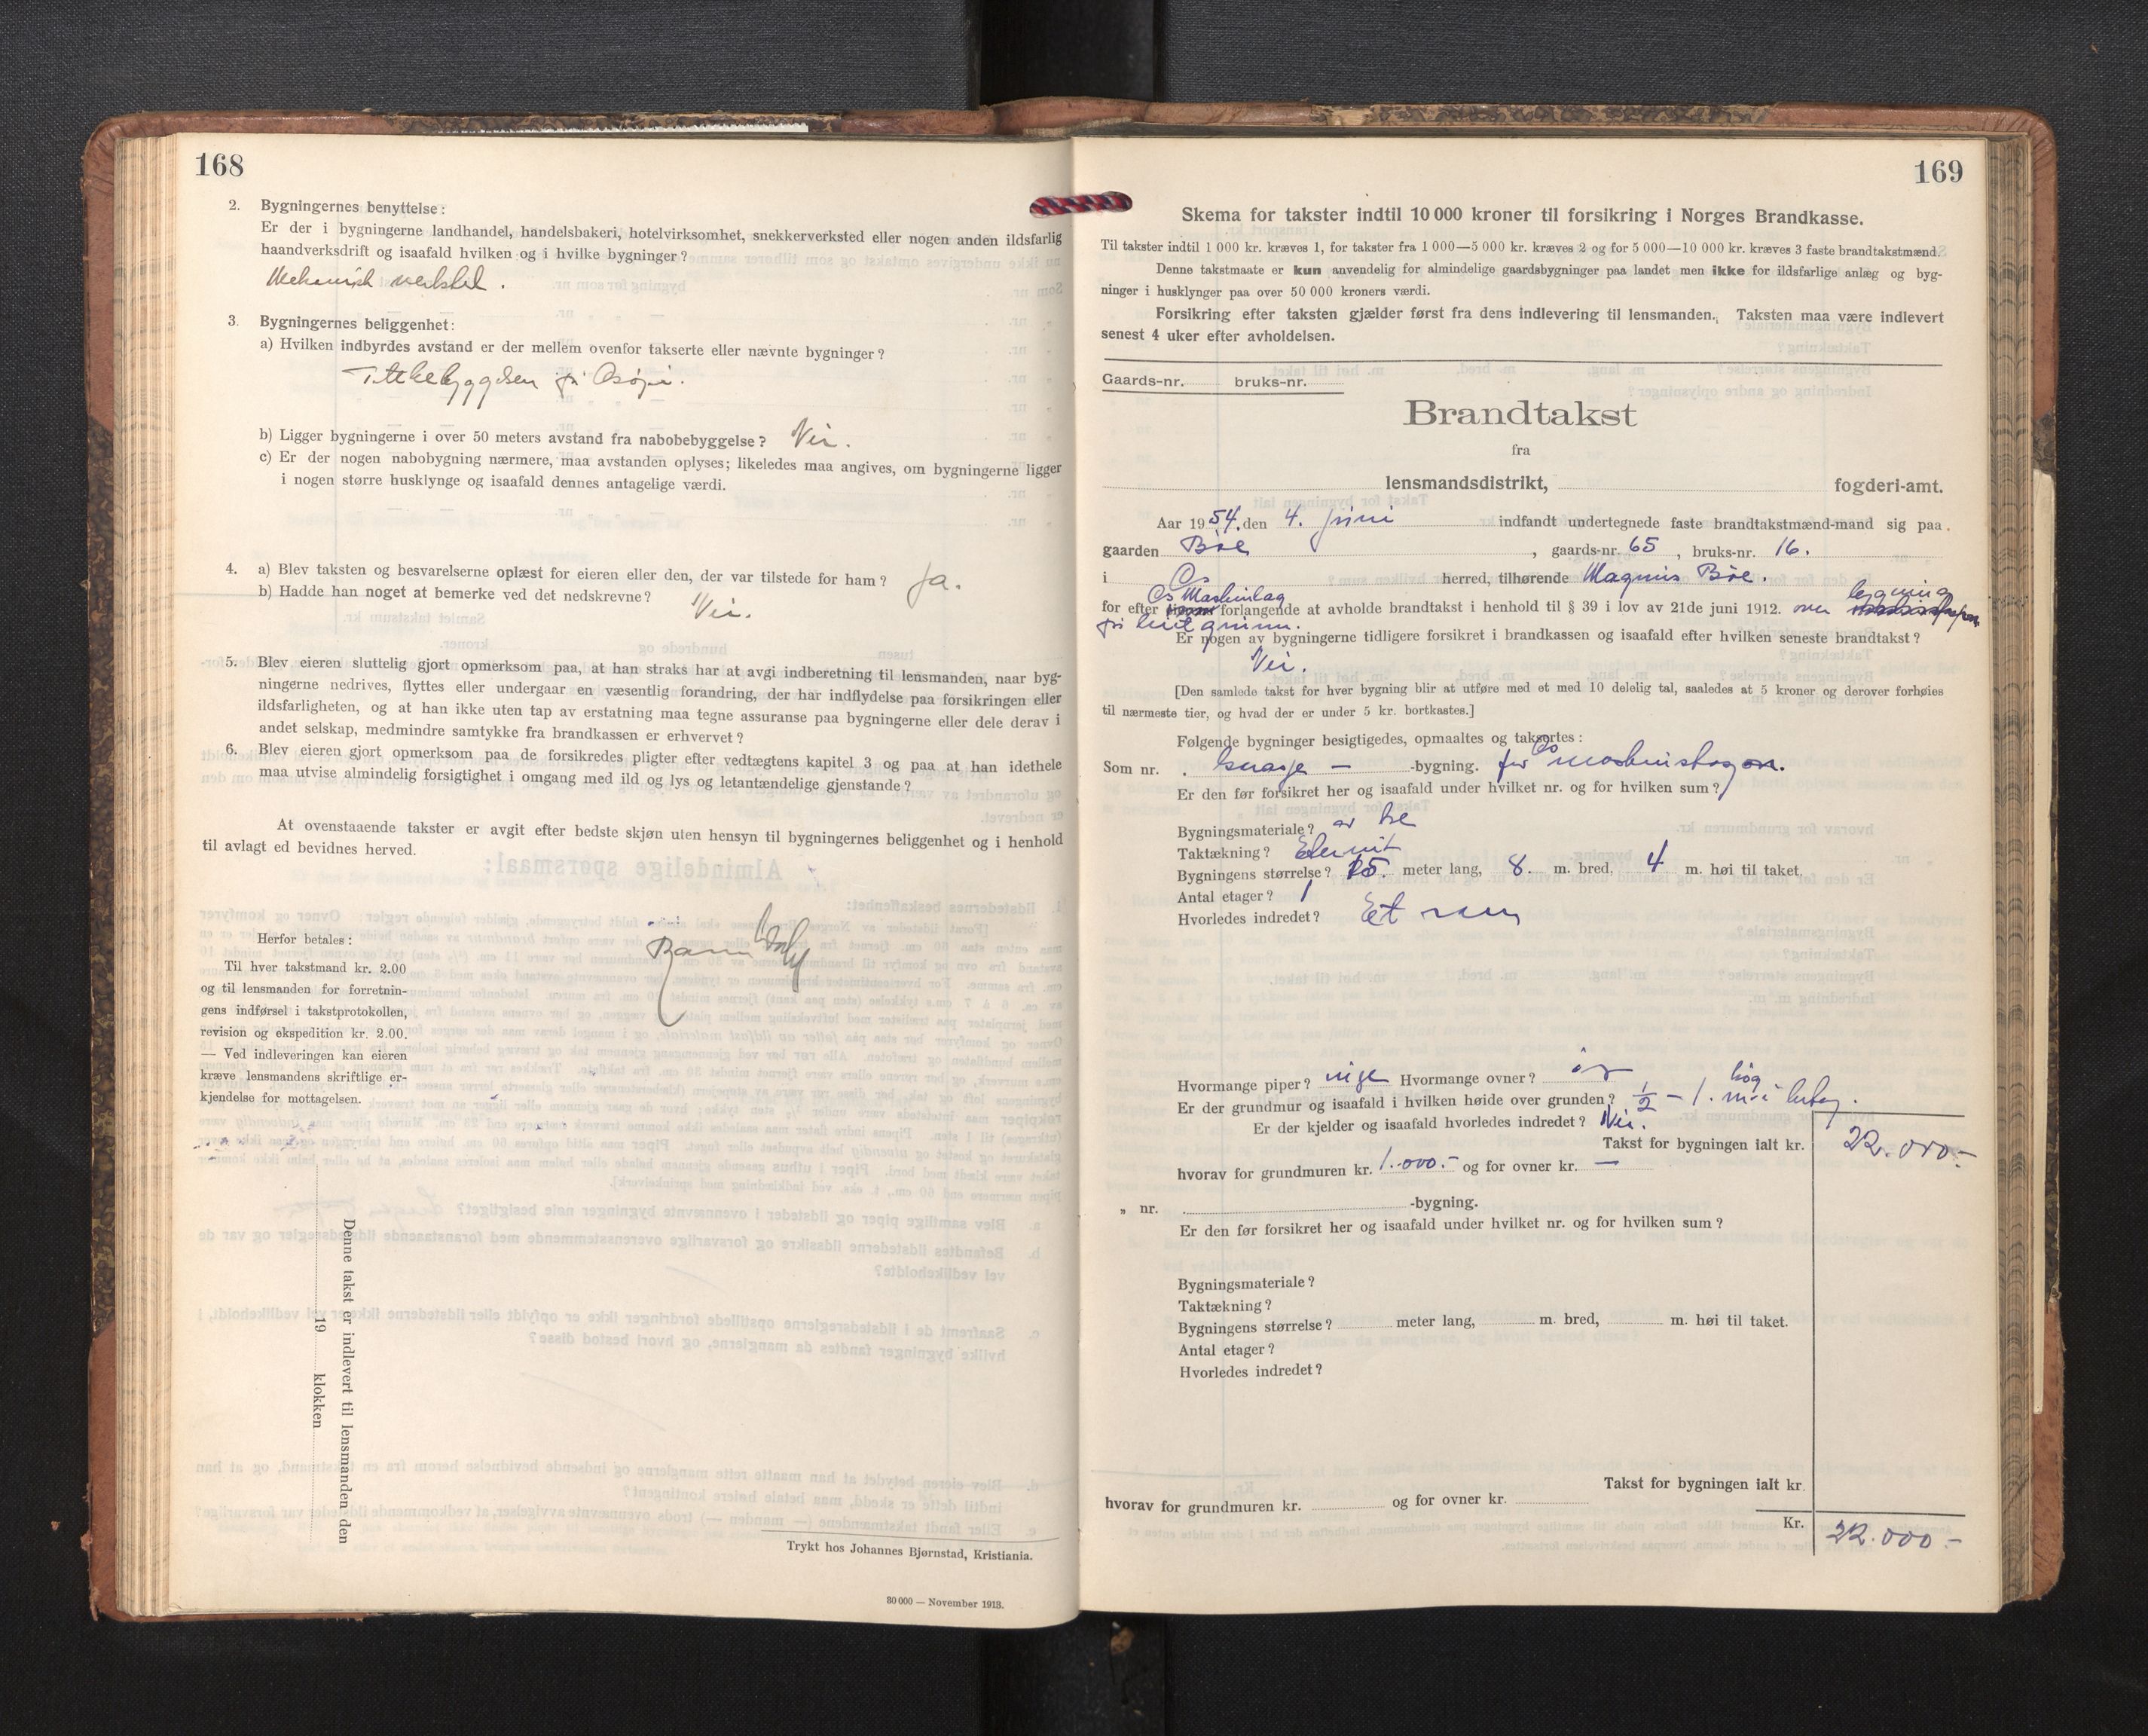 168
2. Bygningernes benyttelse:
Er der i bygningerne landhandel, handelsbakeri, hotelvirksomhet, snekkerverksted eller nogen anden ildsfarlig
haandverksdrift og isaafald hvilken og i hvilke bygninger?
Mekanisk verksted.
3. Bygningernes beliggenhet:
a) Hvilken indbyrdes avstand er der mellem ovenfor takserte eller nævnte bygninger?
Tettbebyggelsen på Osøyri.
b) Ligger bygningerne i over 50 meters avstand fra nabobebyggelse? Nei.
c) Er der nogen nabobygning nærmere, maa avstanden oplyses; likeledes maa angives, om bygningerne ligger
i nogen større husklynge og isaafald dennes antagelige værdi.
4. a) Blev taksten og besvarelserne oplæst for eieren eller den, der var tilstede for ham? Ja.
b) Hadde han noget at bemerke ved det nedskrevne? Nei.
5. Blev eieren sluttelig gjort opmerksom paa, at han straks har at avgi indberetning til lensmanden, naar byg-
ningerne nedrives, flyttes eller undergaar en væsentlig forandring, der har indflydelse paa forsikringen eller
ildsfarligheten, og at han ikke uten tap av erstatning maa tegne assuranse paa bygningerne eller dele derav i
andet selskap, medmindre samtykke fra brandkassen er erhvervet?
6. Blev eieren gjort opmerksom paa de forsikredes pligter efter vedtægtens kapitel 3 og paa at han idethele
maa utvise almindelig forsigtighet i omgang med ild og lys og letantændelige gjenstande?
At ovenstaaende takster er avgit efter bedste skjøn uten hensyn til bygningernes beliggenhet og i henhold
til avlagt ed bevidnes herved.
Herfor betales:
Til hver takstmand kr. 2.00
og til lensmanden for forretnin-
gens indførsel i takstprotokollen,
revision og ekspedition kr. 2.00.
— Ved indleveringen kan eieren
kræve lensmandens skriftlige er-
kjendelse for mottagelsen.
Denne takst er indlevert til lensmanden den
19 klokken
Trykt hos Johannes Bjørnstad, Kristiania.
30 000 — November 1913.
169
Skema for takster indtil 10 000 kroner til forsikring i Norges Brandkasse.
Til takster indtil 1 000 kr. kræves 1, for takster fra 1 000—5 000 kr. kræves 2 og for 5 000—10 000 kr. kræves 3 faste brandtakstmænd.
Denne takstmaate er kun anvendelig for almindelige gaardsbygninger paa landet men ikke for ildsfarlige anlæg og byg-
ninger i husklynger paa over 50 000 kroners værdi.
Forsikring efter taksten gjælder først fra dens indlevering til lensmanden. Taksten maa være indlevert
senest 4 uker efter avholdelsen.
Gaards-nr. bruks-nr.
Brandtakst
fra
lensmandsdistrikt, fogderi-amt.
Aar 1954. den 4. juni indfandt undertegnede faste brandtakstmænd-mand sig paa
gaarden Bøe, gaards-nr. 65, bruks-nr. 16.
i Os herred, tilhørende Magnus Bøe.
Os Maskinlag bygning
for efter forlangende at avholde brandtakst i henhold til § 39 i lov av 21de juni 1912. over
på leid grunn.
Er nogen av bygningerne tidligere forsikret i brandkassen og isaafald efter hvilken seneste brandtakst?
Nei.
[Den samlede takst for hver bygning blir at utføre med et med 10 delelig tal, saaledes at 5 kroner og derover forhøies
til nærmeste tier, og hvad der er under 5 kr. bortkastes.]
Følgende bygninger besigtigedes, opmaaltes og taksertes:
Som nr. Garasje — -bygning. for Os
Er den før forsikret her og isaafald under hvilket nr. og for hvilken sum?
Bygningsmateriale? av tre
Taktækning? Eternit
Bygningens størrelse? 15. meter lang, 8. m. bred, 4 m. høi til taket.
Antal etager? 1
Hvorledes indredet? Et rum
Hvormange piper? inge Hvormange ovner?
Er der grundmur og isaafald i hvilken høide over grunden? ½ – 1. m. høg i betong.
Er der kjelder og isaafald hvorledes indredet? Nei.
Takst for bygningen ialt kr. 22.000.-
hvorav for grundmuren kr. 1.000.- og for ovner kr. —
„ nr. -bygning.
Er den før forsikret her og isaafald under hvilket nr. og for hvilken sum?
Bygningsmateriale?
Taktækning?
Bygningens størrelse? meter lang, m. bred, m. høi til taket.
Antal etager?
Hvorledes indredet?
Takst for bygningen ialt kr.
hvorav for grundmuren kr. og for ovner kr.
Kr. 22.000.-